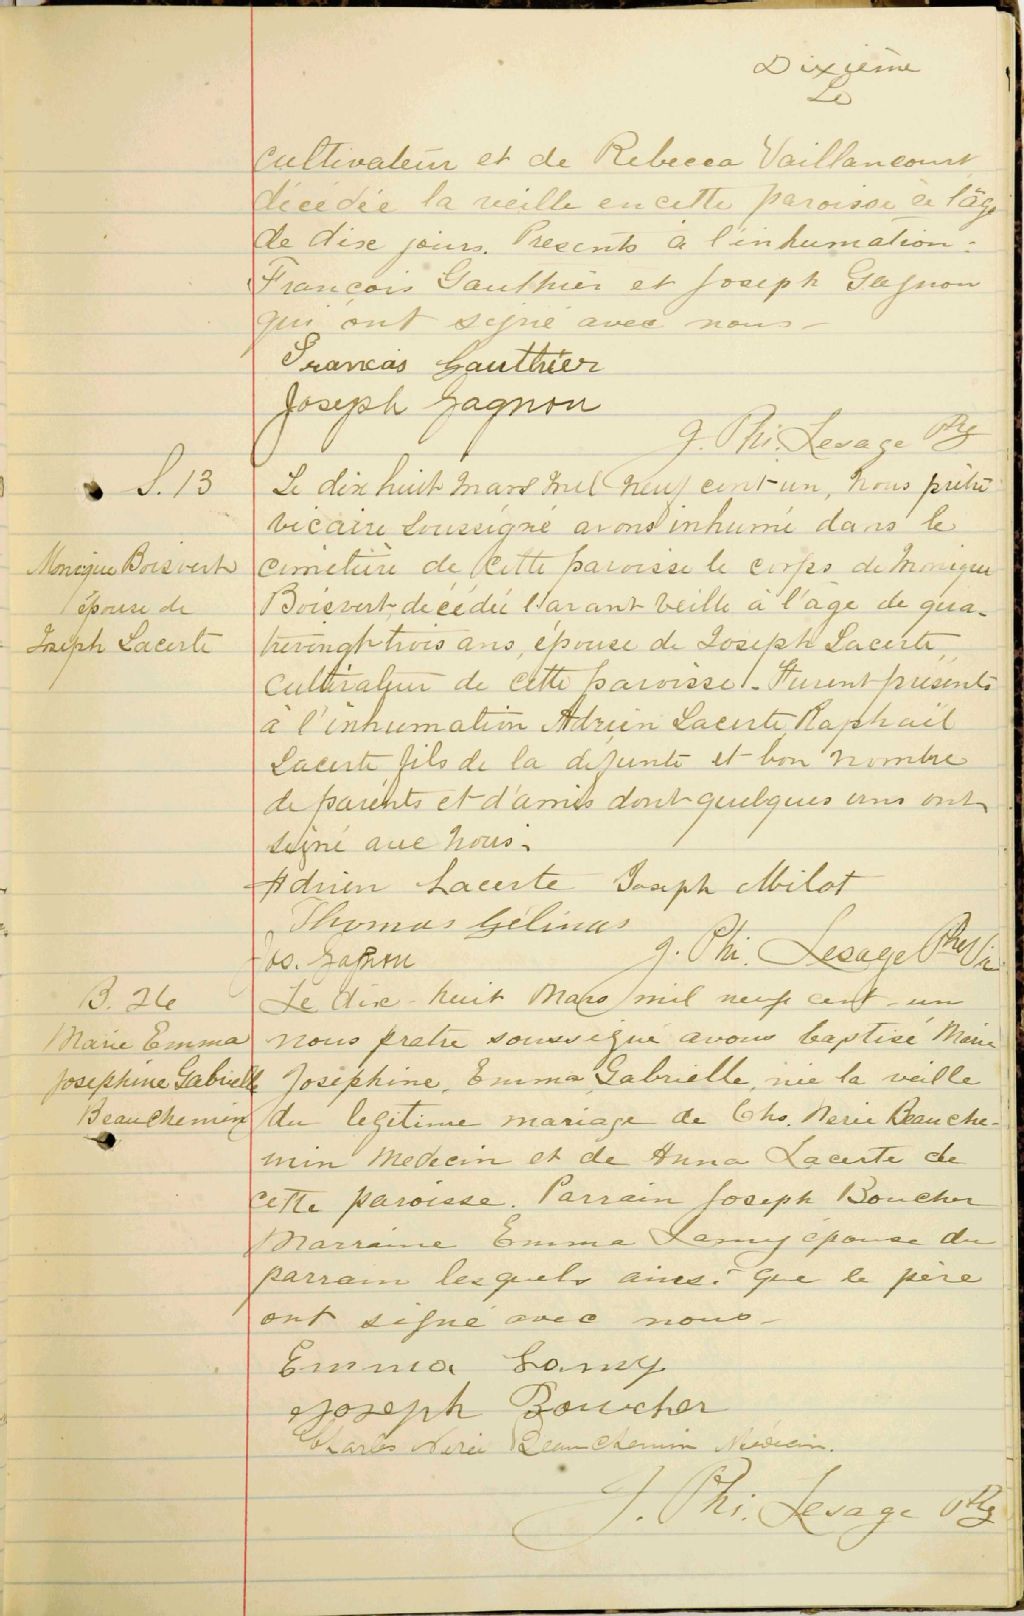 Dixième
Le
cultivateur et de Rebecca Vaillancourt
décédée la veille en cette paroisse à l'âge
de dix jours. Presents à l'inhumation:
François Gauthier et Joseph Gagnon
qui ont signé avec nous-
Francois Gauthier
Joseph Gagnon
J. Phi. Lesage Ptre
S. 13
Le dix huit mars mil neuf cent-un, nous prêtre
vicaire soussigné avons inhumé dans le
Monique Boisvert
cimetière de cette paroisse le corps de Monique
épouse de
Boisvert, décédée l'avant veille à l'âge de qua-
Joseph Lacerte
trevingt trois ans, épouse de Joseph Lacerte,
cultivateur de cette paroisse. - Furent présents
à l'inhumation Adrien Lacerte, Raphaël
Lacerte fils de la défunte et bon nombre
de parents et d'amis dont quelques uns ont
signé avec nous.
Adrien Lacerte Joseph Milot
Thomas Gélinas
Jos. Gagnon J. Phi. Lesage Ptre Vic
B. 26
Le dix-huit Mars mil neuf cent-un
Marie Emma
nous pretre soussigné avons baptisé Marie
Josephine Gabrielle
Joséphine, Emma Gabrielle, née la veille
Beauchemin
du legitime mariage de Chs. Nerée Beauche-
min Medecin et de Anna Lacerte de
cette paroisse. Parrain Joseph Boucher
Marraine Emma Lamy épouse du
parrain lesquels ainsi que le père
ont signé avec nous-
Emma Lamy
Joseph Boucher
Charles Nerée Beauchemin Médecin.
J. Phi. Lesage Ptre